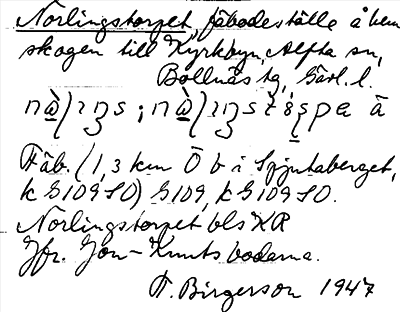 Norlingstorpet, fäbodeställe å hem
skogen till Kyrkbyn, Alfta sn,
Bollnäs tg, Gävl. l.
å
Fäb. (1,3 km Ö b i Spjutaberget,
k G109 SO) G109, k G109 SO.
Norlingstorpet bls KR
Jfr. Jon-Knuts bodarna.
F. Birgerson 1947